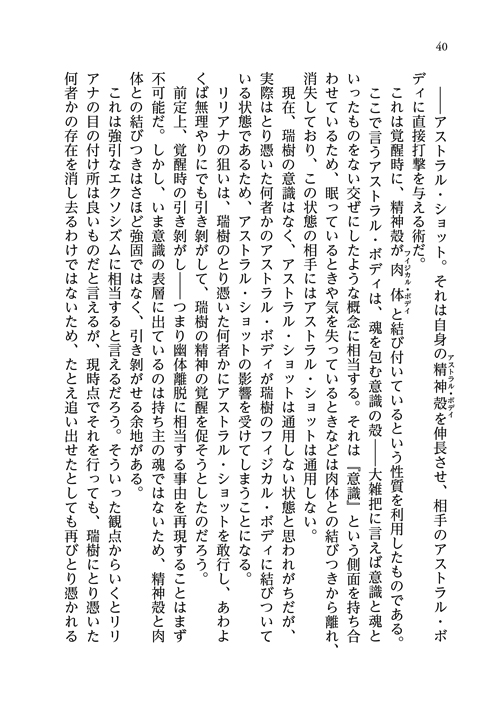 40
――アストラル・ショット。それは自身の精神殻を伸長させ、相手のアストラル・ボ
アストラル・ボディ
ディに直接打撃を与える術だ。
これは覚醒時に、精神殻が肉体と結び付いているという性質を利用したものである。
フィジカル・ボディ
ここで言うアストラル・ボディは、魂を包む意識の殻――大雑把に言えば意識と魂と
いったものをない交ぜにしたような概念に相当する。それは『意識』という側面を持ち合
わせているため、眠っているときや気を失っているときなどは肉体との結びつきから離れ、
消失しており、この状態の相手にはアストラル・ショットは通用しない。
現在、瑞樹の意識はなく、アストラル・ショットは通用しない状態と思われがちだが、
実際はとり憑いた何者かのアストラル・ボディが瑞樹のフィジカル・ボディに結びついて
いる状態であるため、アストラル・ショットの影響を受けてしまうことになる。
リリアナの狙いは、瑞樹のとり憑いた何者かにアストラル・ショットを敢行し、あわよ
くば無理やりにでも引き剝がして、瑞樹の精神の覚醒を促そうとしたのだろう。
前定上、覚醒時の引き剝がし――つまり幽体離脱に相当する事由を再現することはまず
不可能だ。しかし、いま意識の表層に出ているのは持ち主の魂ではないため、精神殻と肉
体との結びつきはさほど強固ではなく、引き剝がせる余地がある。
これは強引なエクソシズムに相当すると言えるだろう。そういった観点からいくとリリ
アナの目の付け所は良いものだと言えるが、現時点でそれを行っても、瑞樹にとり憑いた
何者かの存在を消し去るわけではないため、たとえ追い出せたとしても再びとり憑かれる